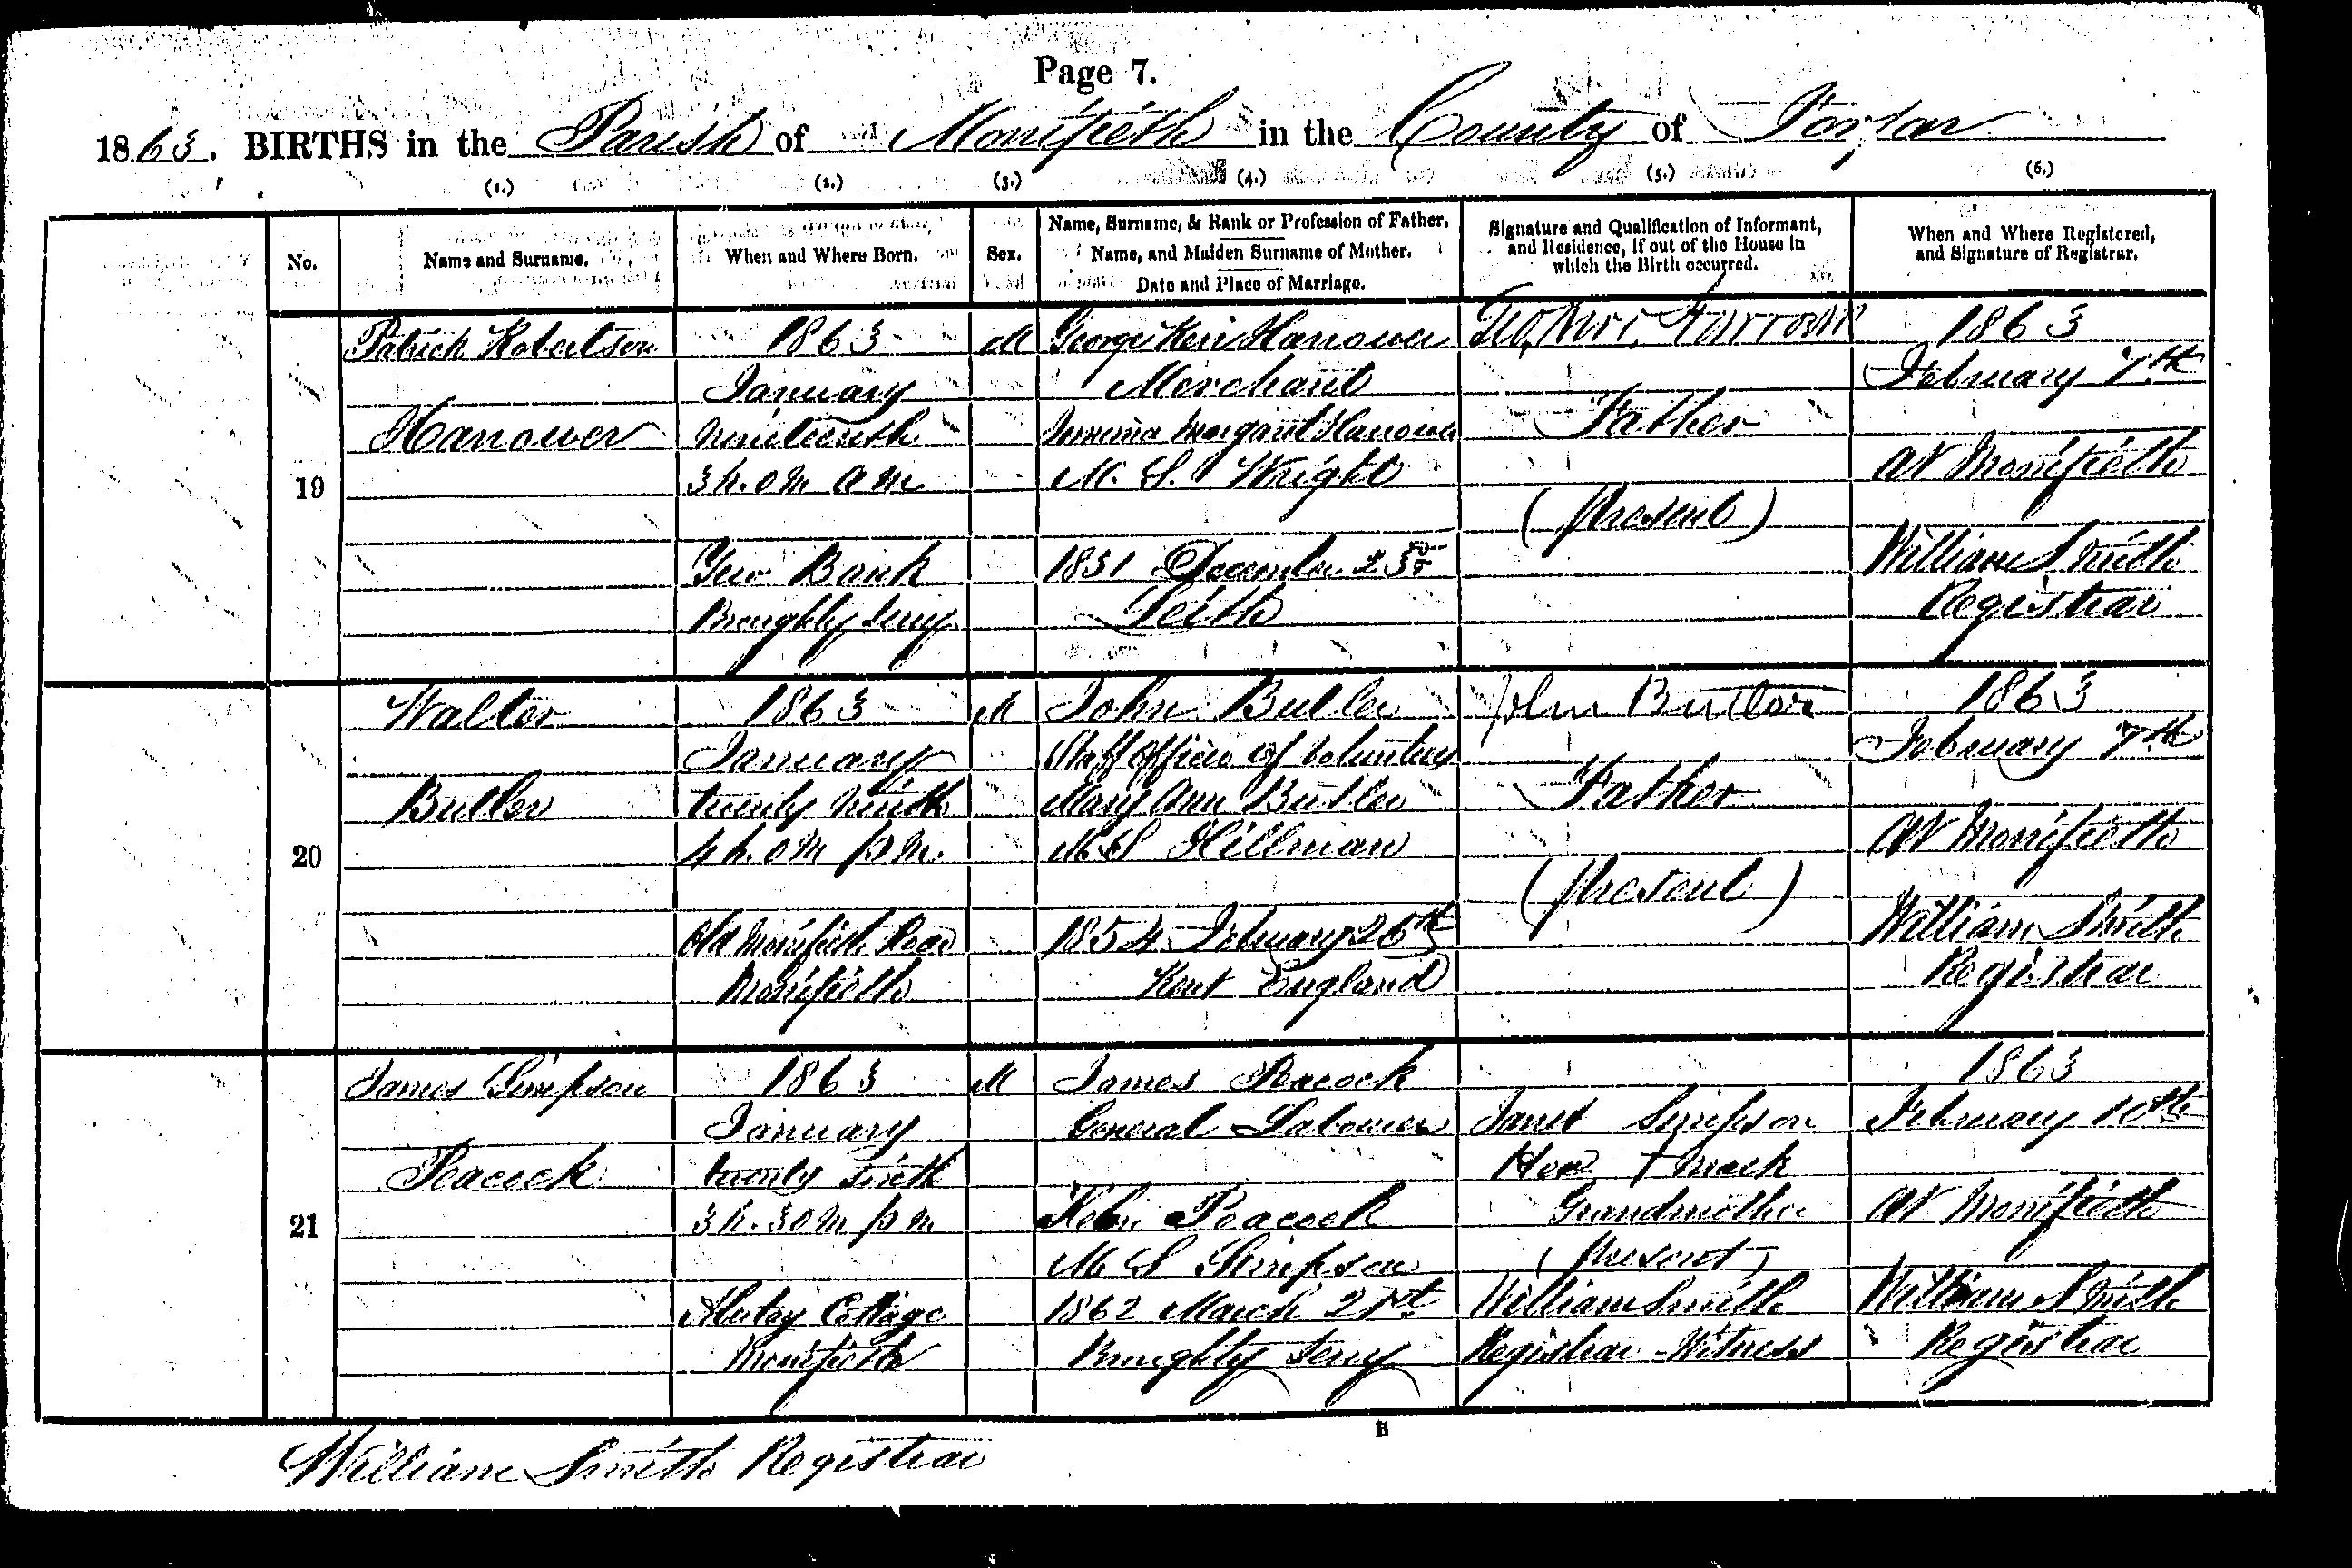 Page 7.
1863. BIRTHS in the Parish of Monifieth in the County of Forfar
(1.) (2.) (3.) (4.) (5.) (6.)
No.
Name and Surname.
When and Where Born.
Sex.
Name, Surname, & Rank or Profession of Father.
Name, and Maiden Surname of Mother.
Date and Place of Marriage.
Signature and Qualification of Informant,
and Residence, if out of the House in
which the Birth occurred.
When and Where Registered,
and Signature of Registrar.
19
Patrick Robertson
Hanower
1863
January
nineteenth
3 h. 0 m a m
Bank
Broughty Ferry
M
George Keir Hanower
Merchant
Margaret Hanower
M. S. Wright
1851 December 23
Leith
Father
(present)
1863
February 7th
At Monifieth
William Smith
Registrar
20
Walter
Butler
1863
January
twenty ninth
4 h. 0 m p m.
Old Monifieth Road
Monifieth
M
John Butler
Staff Officer of Volunteers
Mary Ann Butler
M S Hillman
1854 February 26th
Kent England
John Butler
Father
(present)
1863
February 7th
At Monifieth
William Smith
Registrar
21
James Simpson
Peacock
1863
January
twenty sixth
3 h. 30 m p m
Cottage
Monifieth
M
James Peacock
General Labourer
Peacock
M S Simpson
1862 March 21st
Broughty Ferry
Janet Simpson
Her + mark
Grandmother
(present)
William Smith
Registrar Witness
1863
February 10th
At Monifieth
William Smith
Registrar
B
William Smith Registrar